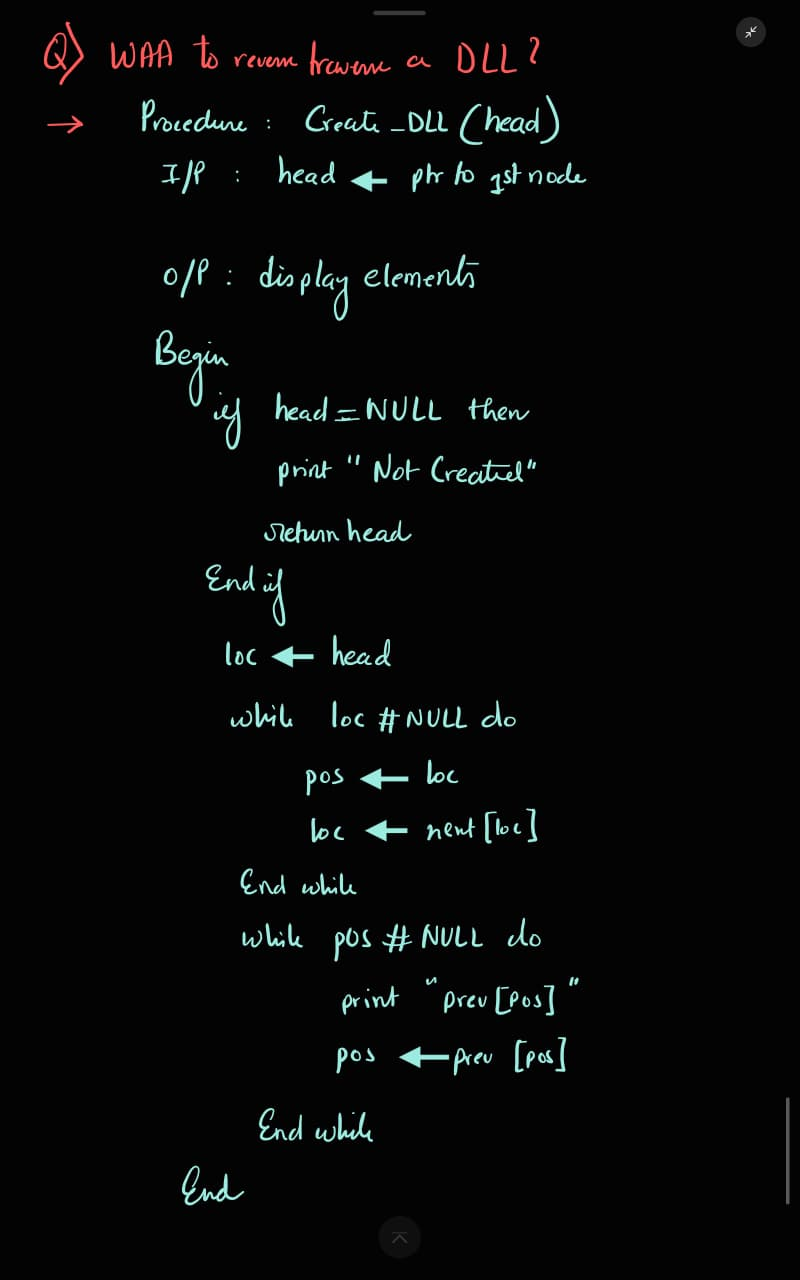 Q) WAA to reverse traverse a DLL?
→ Procedure : Create_DLL (head)
I/P : head ← ptr to 1st node
O/P : display elements
Begin
if head = NULL then
print "Not Created"
return head
End if
loc ← head
while loc # NULL do
pos ← loc
loc ← next [loc]
End while
while pos # NULL do
print "prev [pos]"
pos ← prev [pos]
End while
End